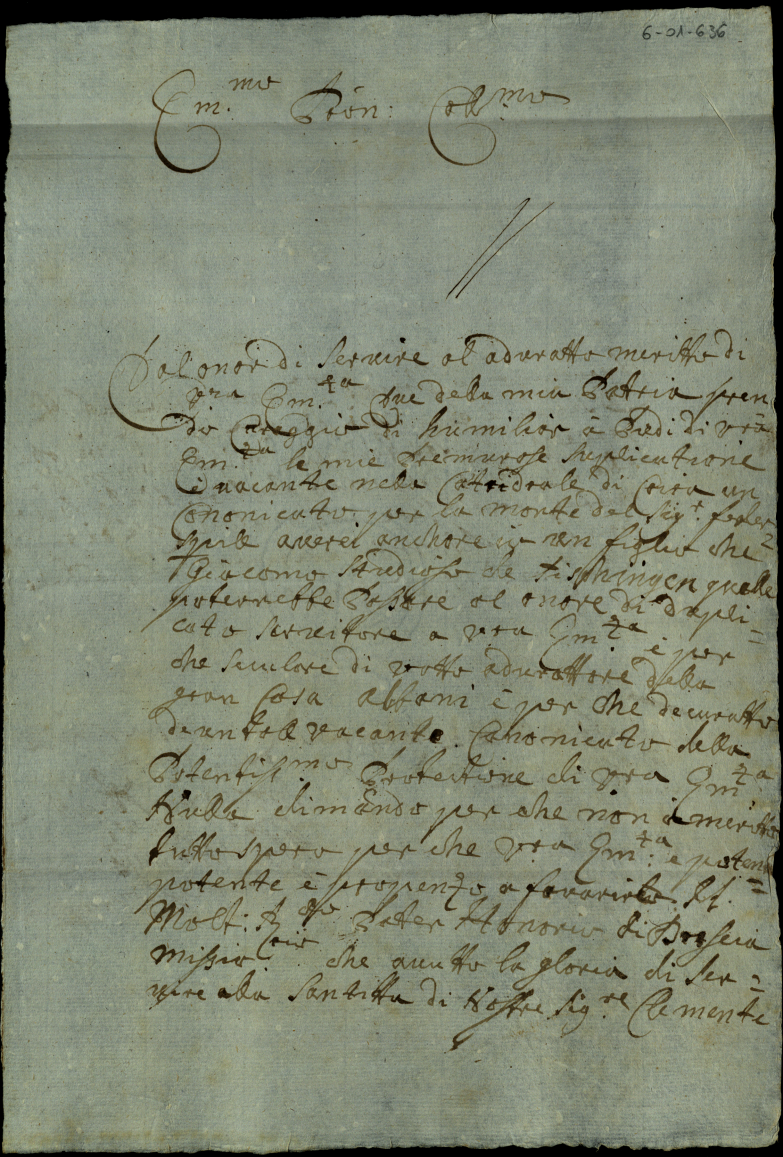 6-01-636
Em.mo Pron: Coll.mo
Dal onor di Servire al aduratto meritto di
vra Em.za due della mia Patria pren
do Coreggio di humiliar à Piedi di vra
Em.za le mie premurose suplicatione
è vacante nella Catedrale di Coira un
Canonicato per la morte del Sigr.
averei anchore io un figlio che
Giacomo studioso de Fischingen quelle
poterrebbe Passare al onore di dupli=
cato servitore a vra Em.za è per
che sculore di votto adurattore della
gran Casa Albani è per che decoratto
vacante Canonicato della
Potentissmo Protetione di vra Em.za
Nulla dimando per che non à meritto
tutto spera per che vra Em.za è poten=
potente è propenzo a favorirlo. Il
Molt: Rdo Pater Honorio di Brescia
Missiorio che avutto la gloria di ser=
vire alla Santitta di Nostre Sigre Clemente